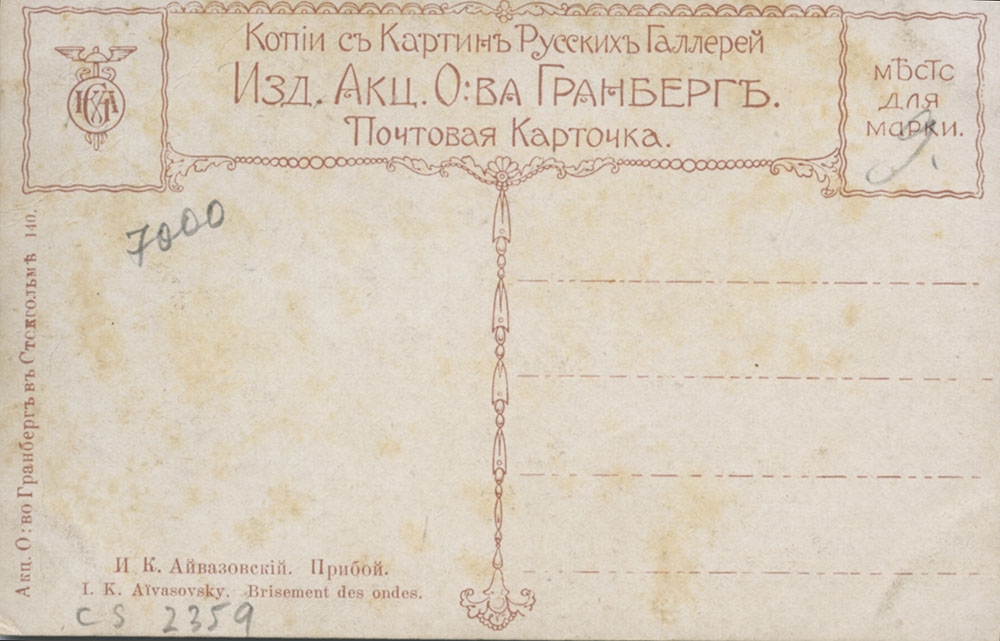 Копіи съ Картинъ Русскихъ Галлерей
Изд. Акц. О:ва Гранбергъ.
Почтовая Карточка.
мѣстс
для
марки.
9.
7000
Акц. О:во Гранбергъ въ Стокгольмѣ 140.
И К. Айвазовскій. Прибой.
I. K. Aïvasovsky. Brisement des ondes.
CS 2359